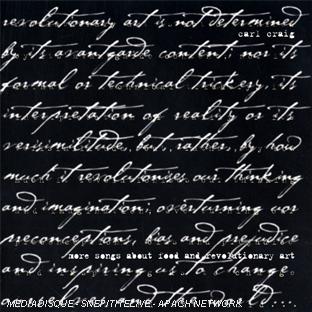 revolutionary art is not determined
carl craig
by its avantgarde content; nor its
formal or technical trickery, its
interpretation of reality or its
verisimilitude, but, rather, by how
much it revolutionises our thinking
and imagination; overturning our
preconceptions, bias and prejudice
more songs about food and revolutionary art
and inspiring us to change
MEDIADISQUE - SNEPITHELIVE - APACH NETWORK